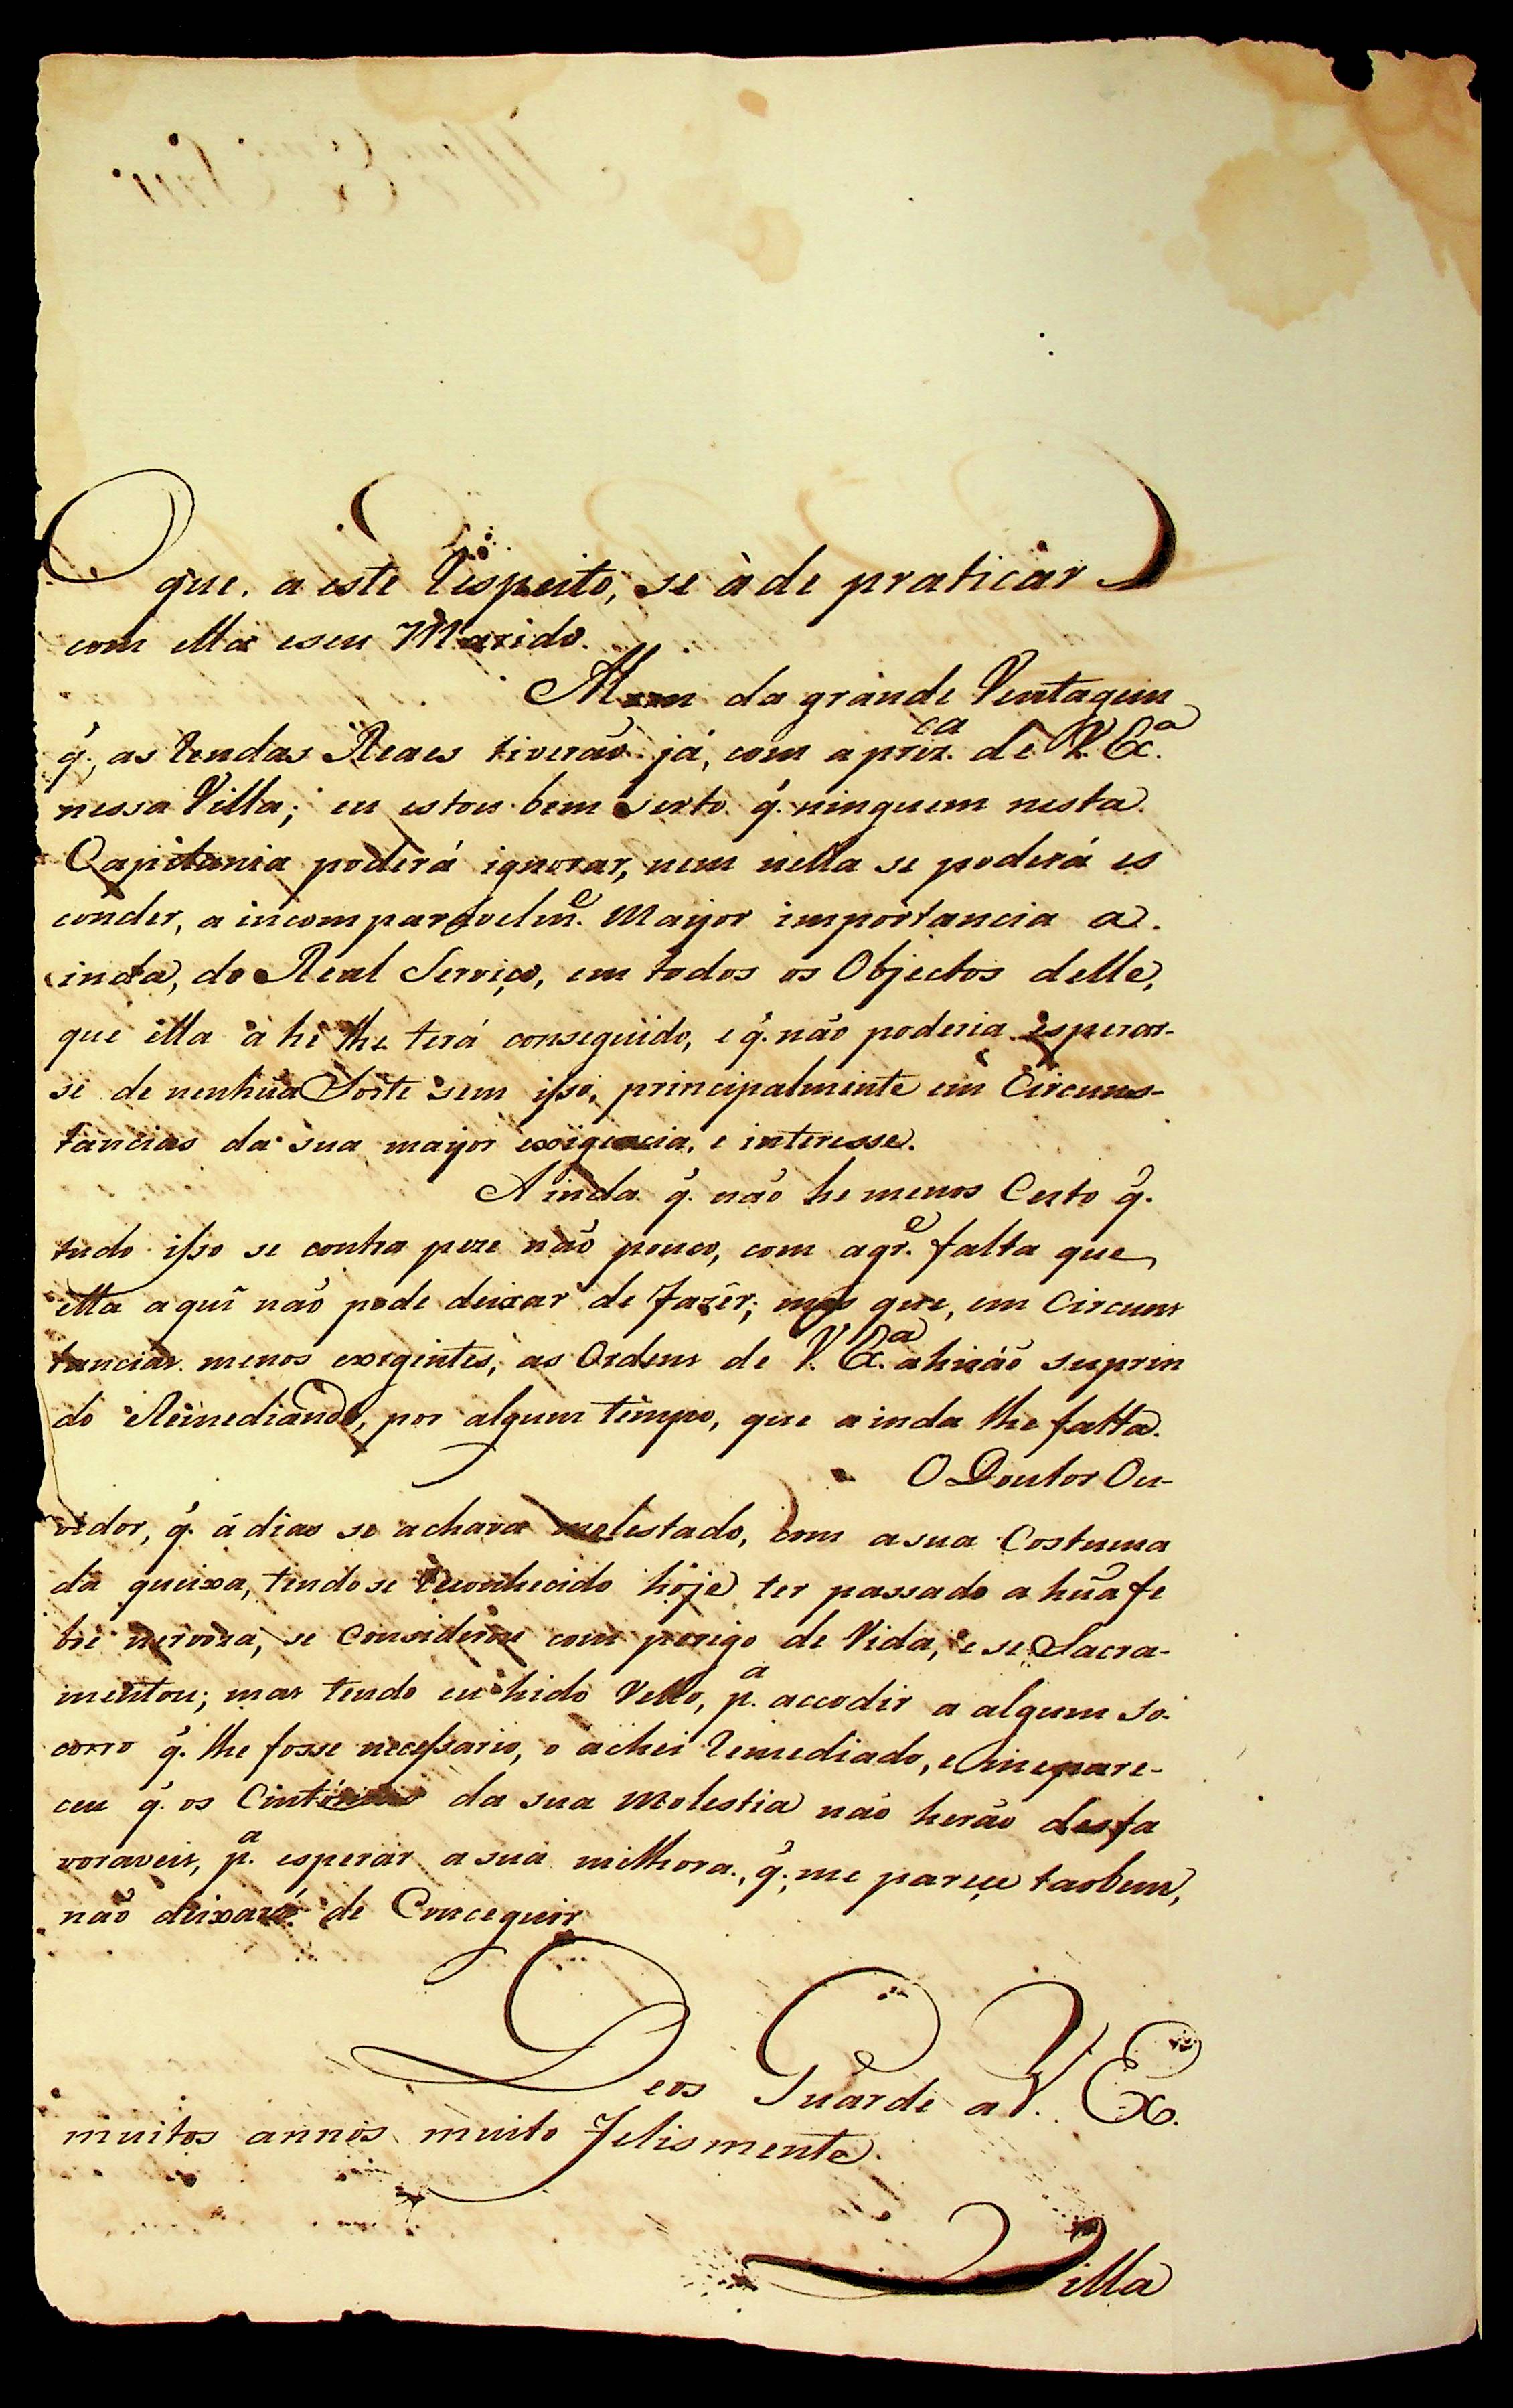 que, a este respeito, se à de praticar
com ella e seu Marido.
Alem da grande Ventagem
q̃, as rendas Reaes tiverão já, com a prez.ca de V. Ex.a
nessa Villa; eu estou bem serto q̃. ninguem nesta
Capitania poderá ignorar, nem nella se poderá es
conder, a incomparavelm.e Mayor importancia a
inda, do Real Serviço, em todos os Objectos delle,
que ella ahi lhe terá conseguido, e q̃. não poderia esperar-
se de nenhũa Sorte sem isso, principalmente em Circuns-
tancias da sua mayor exigencia, e interesse.
Ainda q̃. não he menos Certo q̃.
tudo isso se contra peze não pouco, com a gr.e falta que
ella aqui não pode deixar de fazer; mas que, em Circuns
tancias menos exigentes, as Ordens de V. Ex.a ahirão suprin
do e Remediando, por algum tempo, que ainda lhe falta.
O Doutor Ou-
vidor, q̃. á dias se achava molestado, com a sua Costuma
da queixa, tendose reconhecido hoje ter passado a hũa fe
bre nervoza, se Considerou com perigo de Vida, e se Sacra-
mentou; mas tendo eu hido vello, p.a accodir a algum so-
corro q̃. lhe fosse necessario, o achei remediado, e me pare-
ceu q̃. os Cintómas da sua Molestia não herão desfa
voraveis, p.a esperar a sua milhora, q̃, me pareçe taobem,
não deixará de Conceguir
Deos Guarde a V. Ex.
muitos annos muito Felismente.
Villa